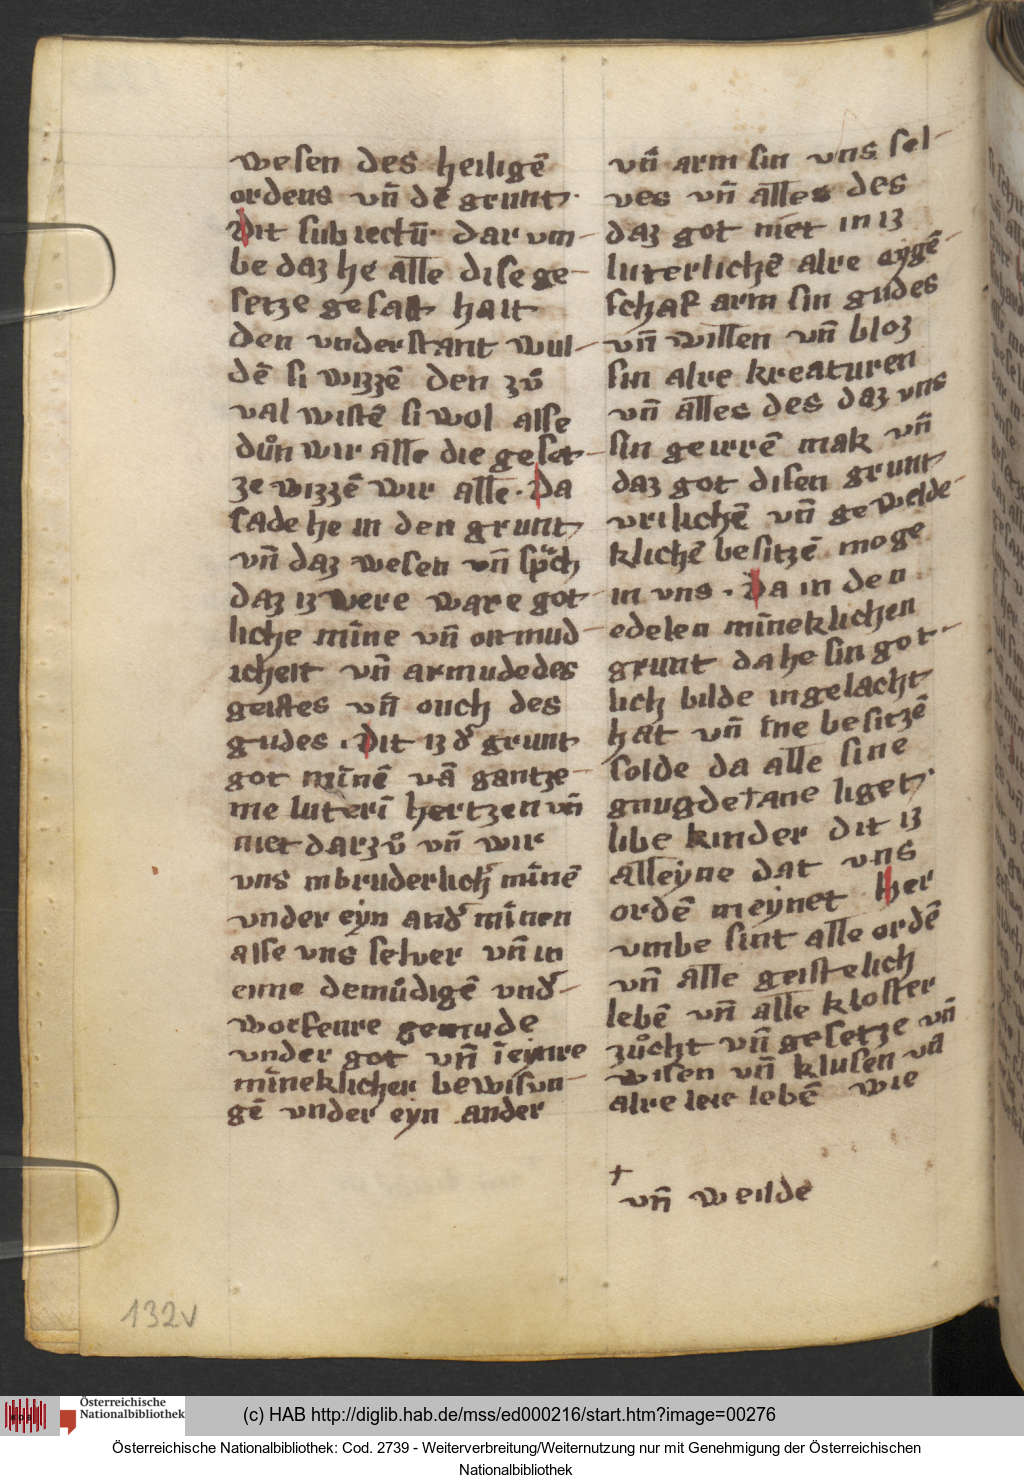 wesen des heiligē
ordens vn̄ dē grunt·
Dit subiectū· dar vm-
be daz he alle dise ge-
setze gesast hait
den understant wul-
dē si wizzē den zů
val wistē si wol alse
důn wir alle die geset-
ze wizzē wir alle· Da
sade he in den grunt
vn̄ daz wesen vn̄ sprach
daz iz were ware got
liche mīne vn̄ oitmud-
icheit vn̄ armude des
geistes vn̄ ouch des
gudes · Dit iz d' grunt
got mīnē vā gantze-
me luterī hertzen vn̄
niet darzů vn̄ wir
vns in bruderlich' mīnē
vnder eyn and' mīnen
alse vns selver vn̄ in
eime demůdigē vnd'-
worfenre gemude
vnder got vn̄ ī eynre
mīneklicher bewisvn-
gē vnder eyn ander
vn̄ arm sin vns sel-
ves vn̄ alles des
daz got niet in iz
luterlichē alre eygē-
schaf arm sin gudes
vn̄ willen vn̄ bloz
sin alre kreaturen
vn̄ alles des daz vns
sin geirrē mak vn̄
daz got disen grunt
vrilichē vn̄ gewelde-
klichē besitzē moge
in vns · Da in den
edelen mīneklichen
grunt da he sin got-
lich bilde in gelacht
hat vn̄ īne besitzē
solde da alle sine
gnugde † ane liget·
libe kinder dit iz
alleyne dat vns
ordē meynet her
vmbe sint alle ordē
vn̄ alle geistelich
lebē vn̄ alle kloster
zůcht vn̄ gesetze vn̄
wisen vn̄ klusen vn̄
alre leie lebē wie
† vn̄ weilde
132v
Österreichische
Nationalbibliothek
(c) HAB http://diglib.hab.de/mss/ed000216/start.htm?image=00276
Österreichische Nationalbibliothek: Cod. 2739 - Weiterverbreitung/Weiternutzung nur mit Genehmigung der Österreichischen
Nationalbibliothek